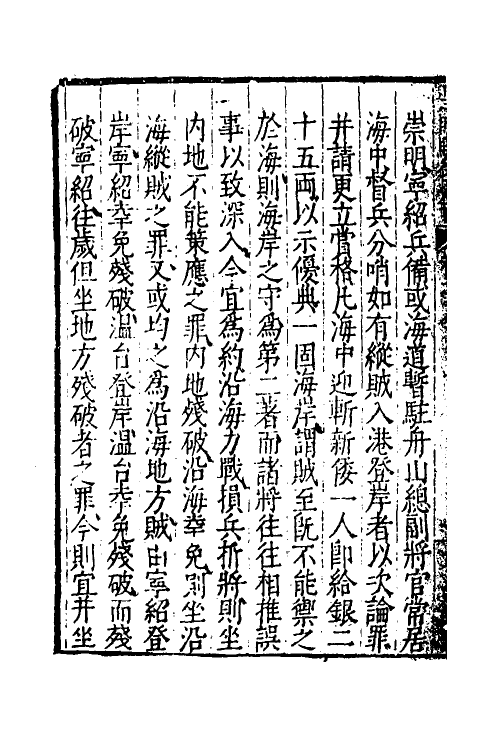 崇明寧紹兵備或海道暫駐舟山總副將官常居
海中督兵分哨如有縱賊入港登岸者以次論罪
并請更立賞格凡海中迎斬新倭一人即給銀二
十五兩以示優典一固海岸謂賊至既不能禦之
於海則海岸之守為第二著而諸將往往相推誤
事以致深入今宜為約沿海力戰損兵折將則坐
内地不能策應之罪内地殘破沿海幸免則坐沿
海縱賊之罪又或均之為沿海地方賊由寧紹登
岸寧紹幸免殘破溫台登岸溫台幸免殘破而殘
破寧紹往歲但坐地方殘破者之罪今則宜并坐